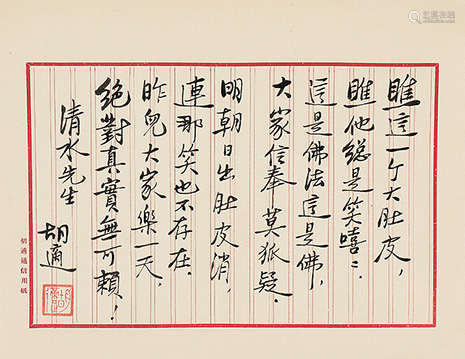 瞧這一个大肚皮，
瞧他總是笑嘻：
這是佛法這是佛，
大家信奉莫狐疑．
明朝日出肚皮消，
連那笑也不存在．
昨兒大家樂一天，
絕對真實無可賴！
清水先生
胡適
胡適通信用紙